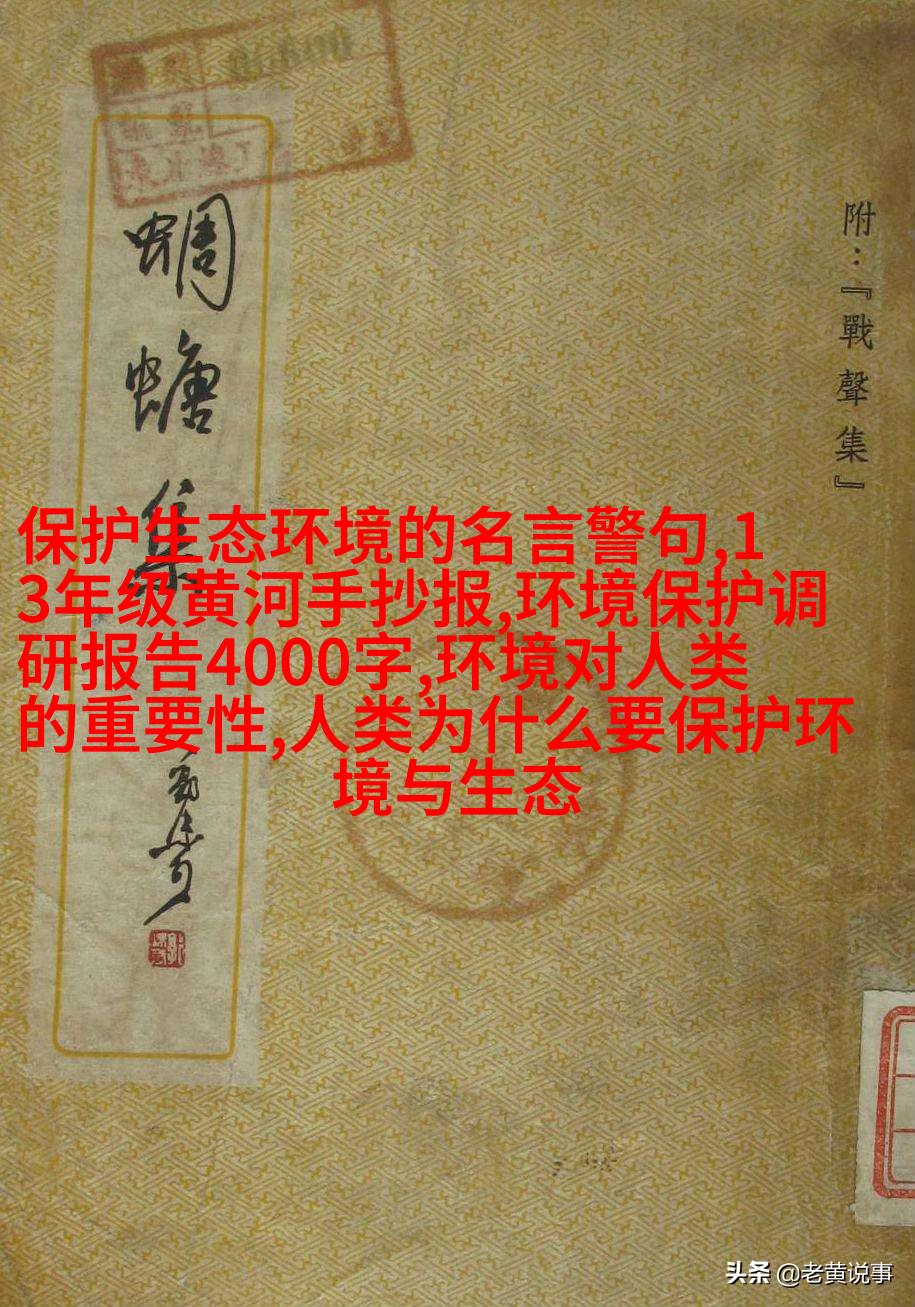 蜩螗集
附：『戰聲集』
保护生态环境的名言警句,1
3年级黄河手抄报,环境保护调
研报告4000字,环境对人类
的重要性,人类为什么要保护环
境与生态
头条 @老黄说事